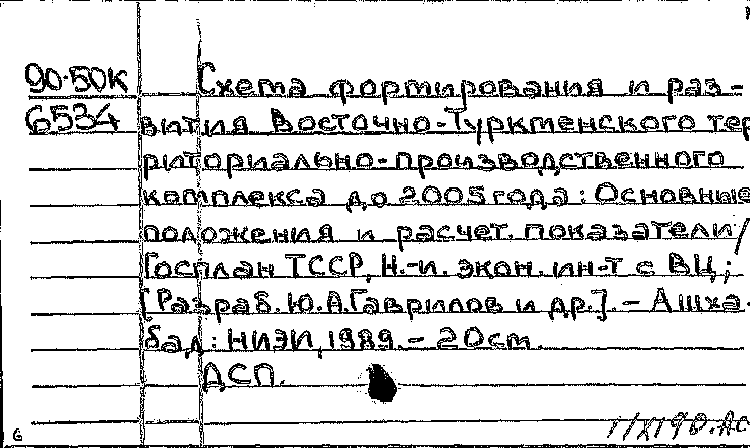 90-50к Схема формирования и раз-
6534 вития Восточно-Туркменского тер
риториально-производственного
комплекса до 2005 года: Основные
положения и расчет. показатели /
Госплан ТССР, Н.-и. экон. ин-т с ВЦ;
[Разраб. Ю.А.Гаврилов и др.]. - Ашха-
бад: НИЭИ, 1989. - 20см.
ДСП.
6